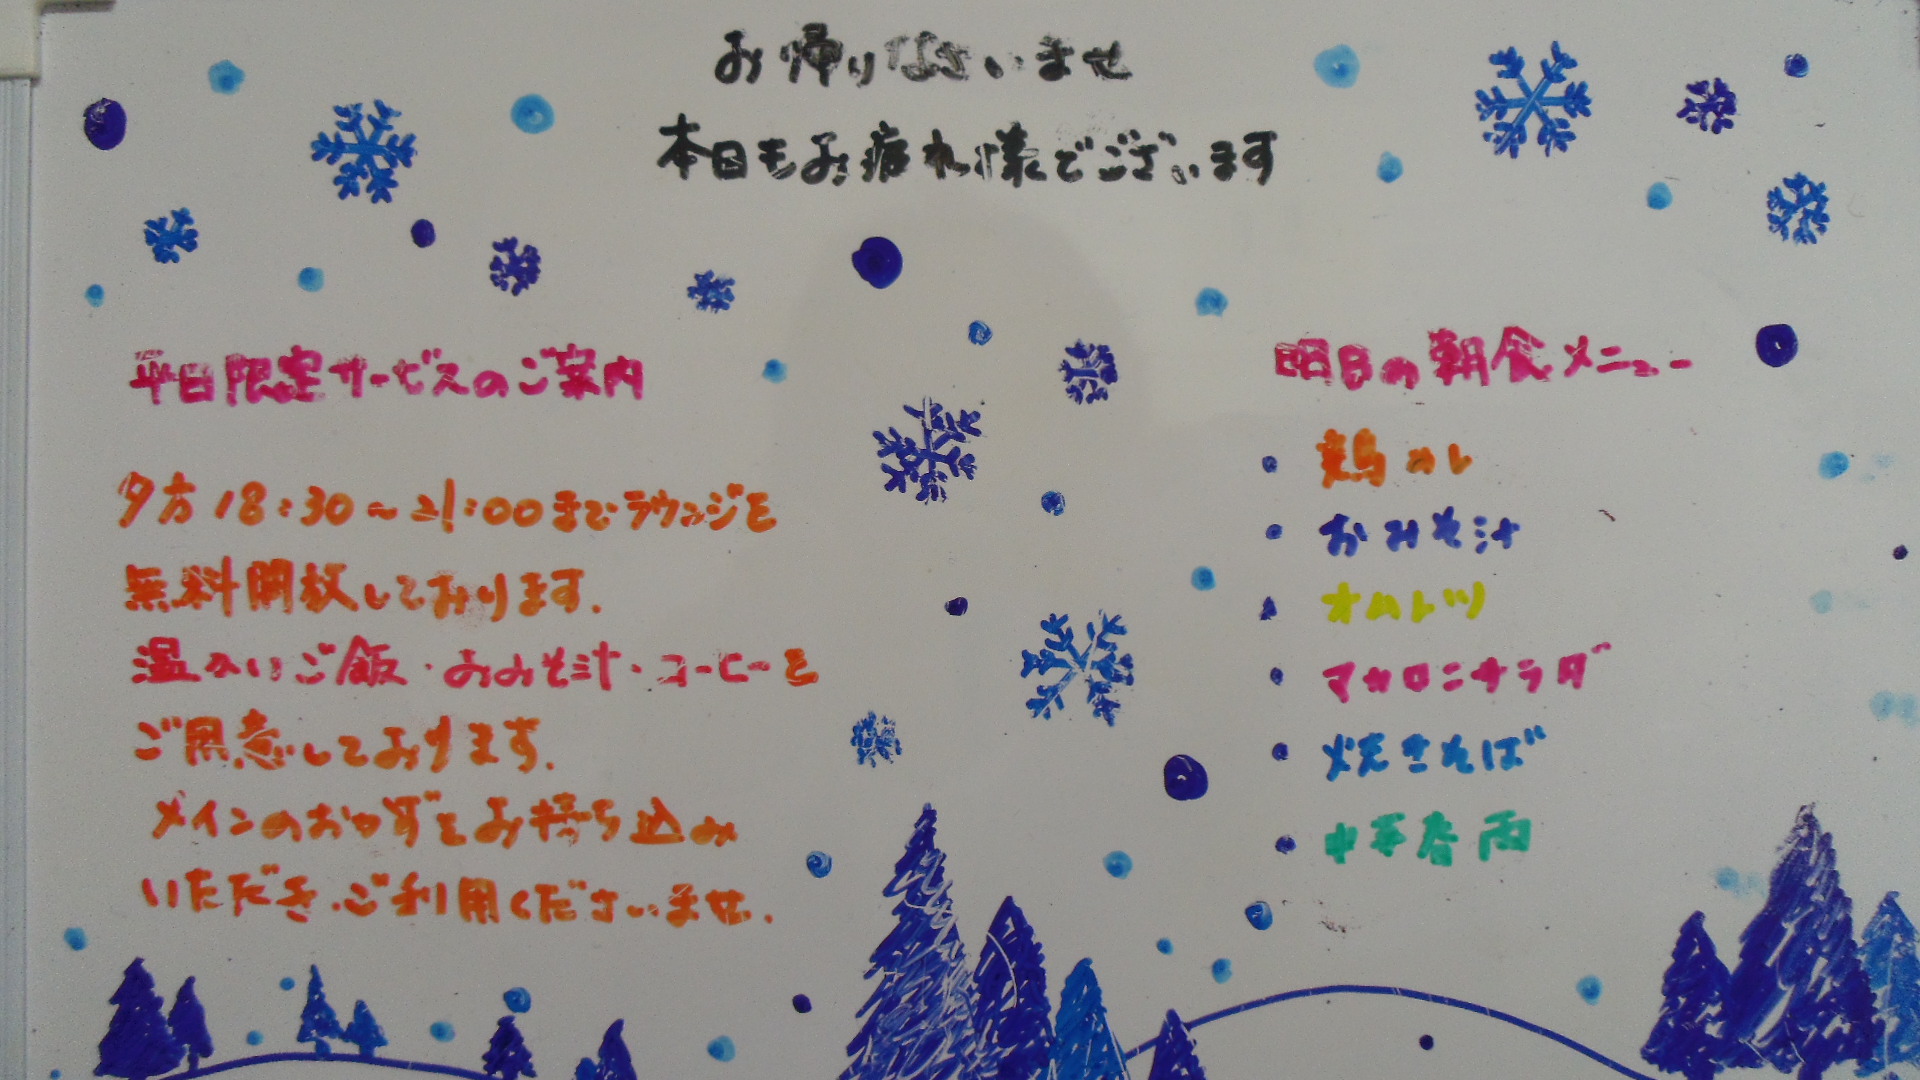 お帰りなさいませ
本日もお疲れ様でございます
平日限定サービスのご案内
夕方18:30～21:00までラウンジを
無料開放しております.
温かいご飯・おみそ汁・コーヒーを
ご用意しております.
メインのおかずをお持ち込み
いただき.ご利用くださいませ.
明日の朝食メニュー
・鶏カレ
・おみそ汁
・オムレツ
・マカロニサラダ
・焼きそば
・中華春雨